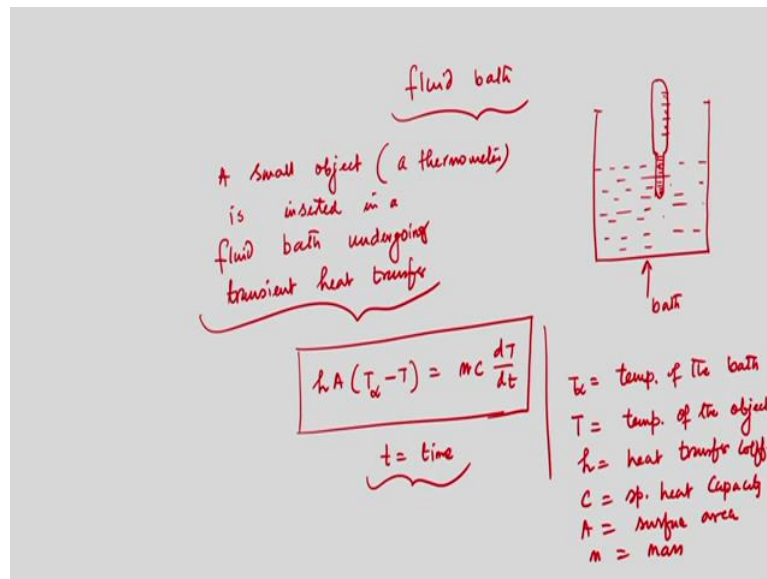 fluid bath
A small object (a thermometer)
is inseted in a
fluid bath undergoing
transient heat transfer
bath
hA(T_α-T) = mC dT/dt
t = time
T_α = temp. of the bath
T = temp. of the object
h = heat transfer coeff
C = sp. heat Capacity
A = surface area
m = mass